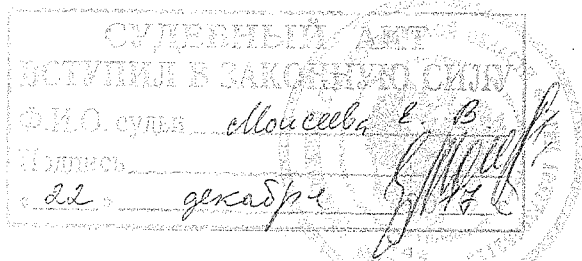 СУДЕБНЫЙ АКТ
ВСТУПИЛ В ЗАКОННУЮ СИЛУ
Ф.И.О. судьи Моисеева Е. В.
Подпись
« 22 » декабря 17 г